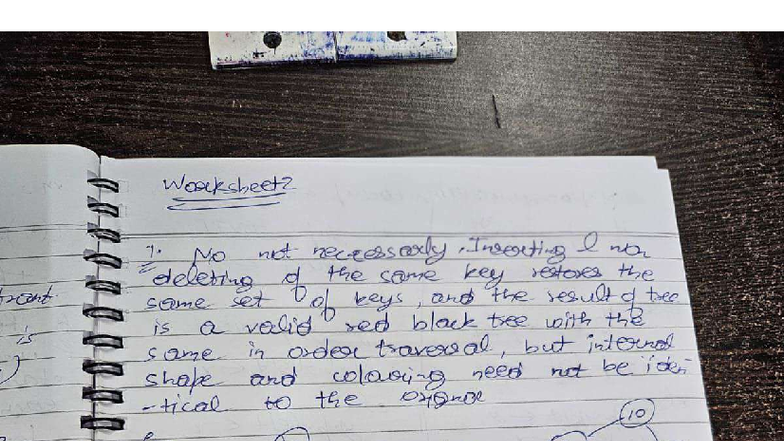 Worksheet2
1. No not necessarly. Inserting & non
deleting of the same key restores the
same set of keys, and the result of tree
is a valid red black tree with the
same in order traversal, but internal
shape and colouring need not be iden
-tical to the
is
10